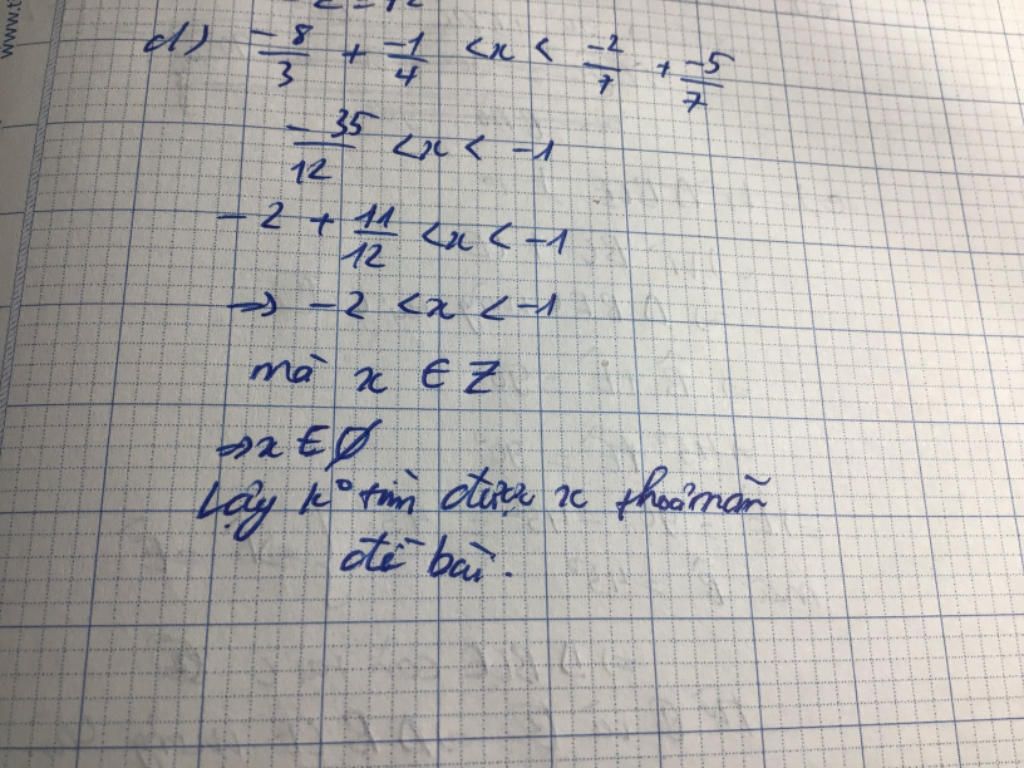 d) -8/3 + -1/4 < x < -2/7 + -5/7
-35/12 < x < -1
-2 + 11/12 < x < -1
=> -2 < x < -1
mà x ∈ Z
=> x ∈ Ø
Vậy k° tìm được x thoả mãn
đề bài.